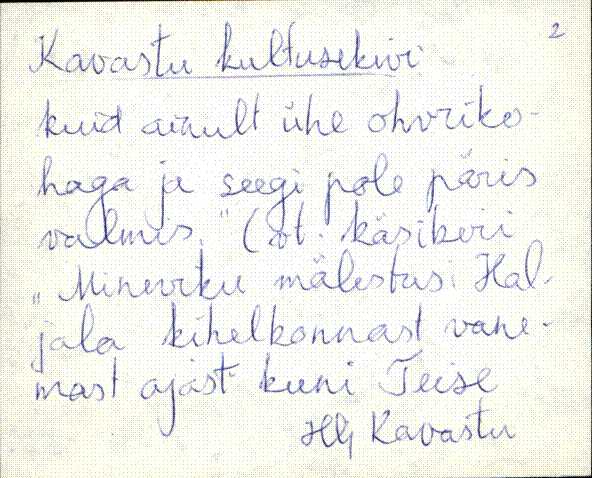 2
Kavastu kultusekivi
kuid ainult ühe ohvriko-
haga ja seegi pole päris
valmis." (vt. käsikiri
„Mineviku mälestusi Hal-
jala kihelkonnast vane-
mast ajast kuni Teise
Hlj Kavastu